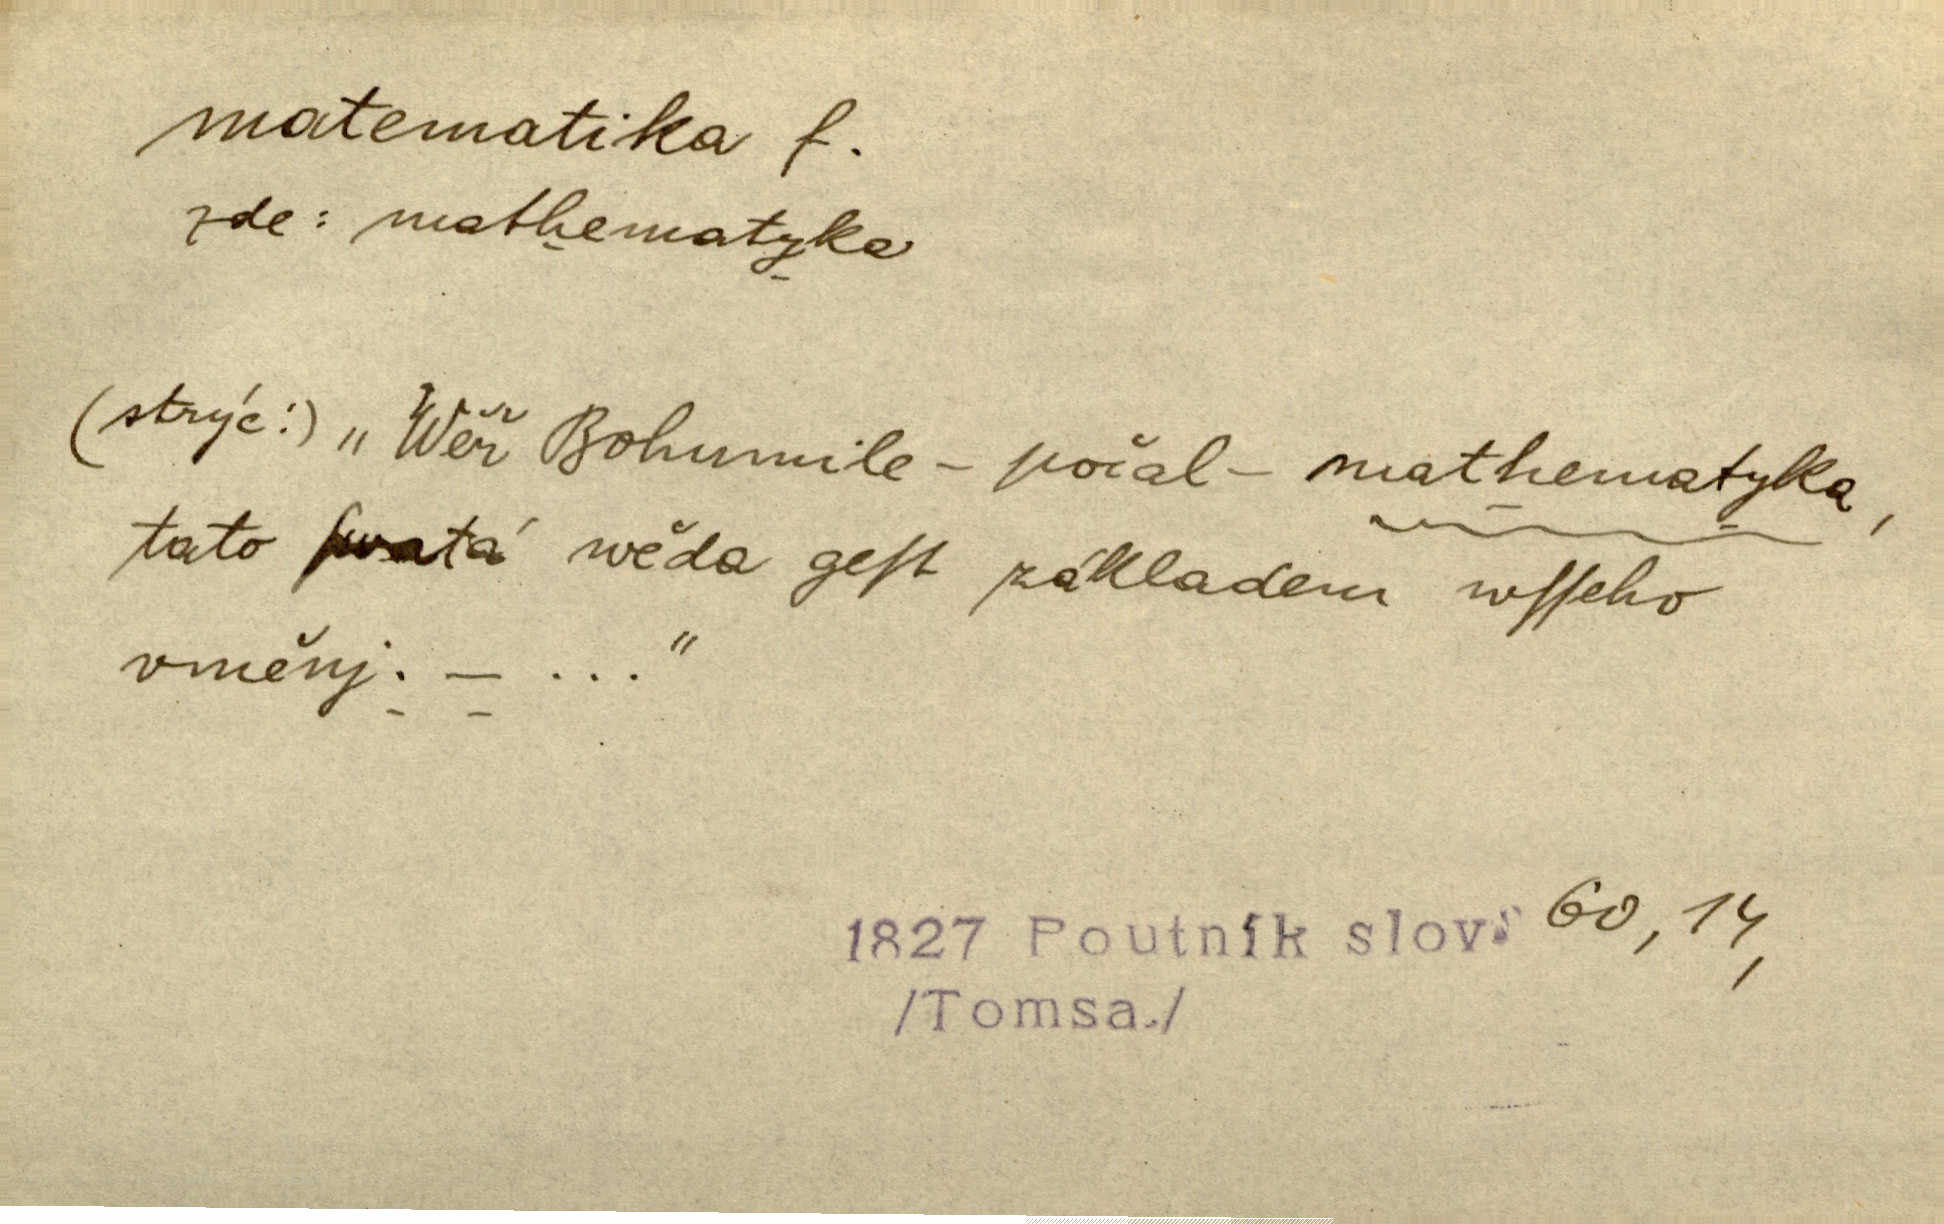 matematika f.
zde: mathematyka
(strýc:) „Wěř Bohumile – počal – mathematyka,
tato ſwatá wěda geſt základem wſſeho
vměnj. – ..."
1827 Poutník slov. 60, 14,
/Tomsa./